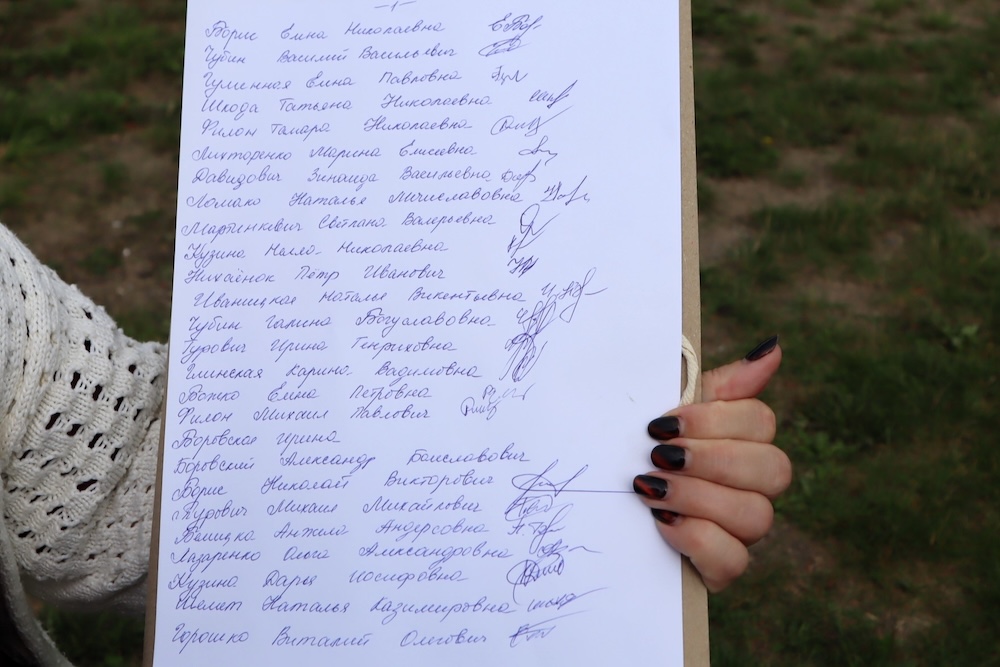 -1-
Борис Елена Николаевна
Чубин Василий Васильевич
Гулинная Елена Павловна
Шкода Татьяна Николаевна
Филон Тамара Николаевна
Лихторенко Марина Елисеевна
Давидович Зинаида Васильевна
Ломако Наталья Мичиславовна
Мартинкевич Светлана Валерьевна
Кузина Нелла Николаевна
Пётр Иванович
Иваницкая Наталья Викентьевна
Чубин Галина Богуславовна
Гурович Ирина Генриховна
Глинская Карина Вадимовна
Божко Елена Петровна
Филон Михаил Павлович
Боровская Ирина
Боровский Александр Болиславович
Борис Николай Викторович
Гурович Михаил Михайлович
Анжела Андерсовна
Лазаренко Ольга Александровна
Кузина Дарья Иосифовна
Шелет Наталья Казимировна
Горошко Виталий Олегович